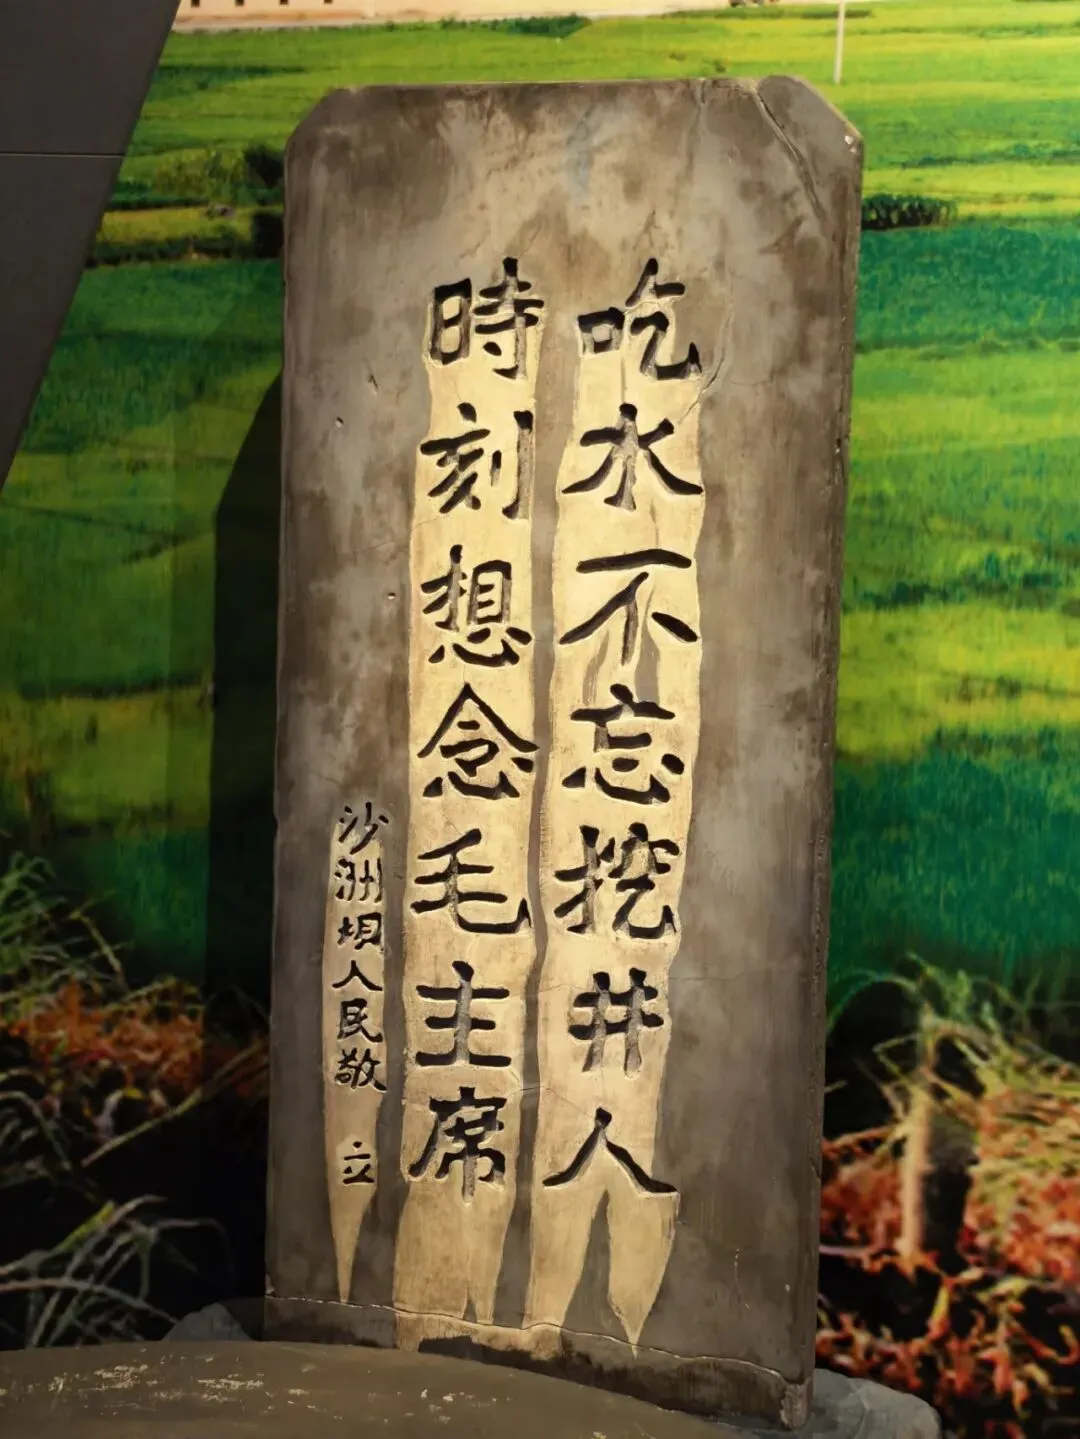 吃水不忘挖井人
時刻想念毛主席
沙洲坝人民敬立